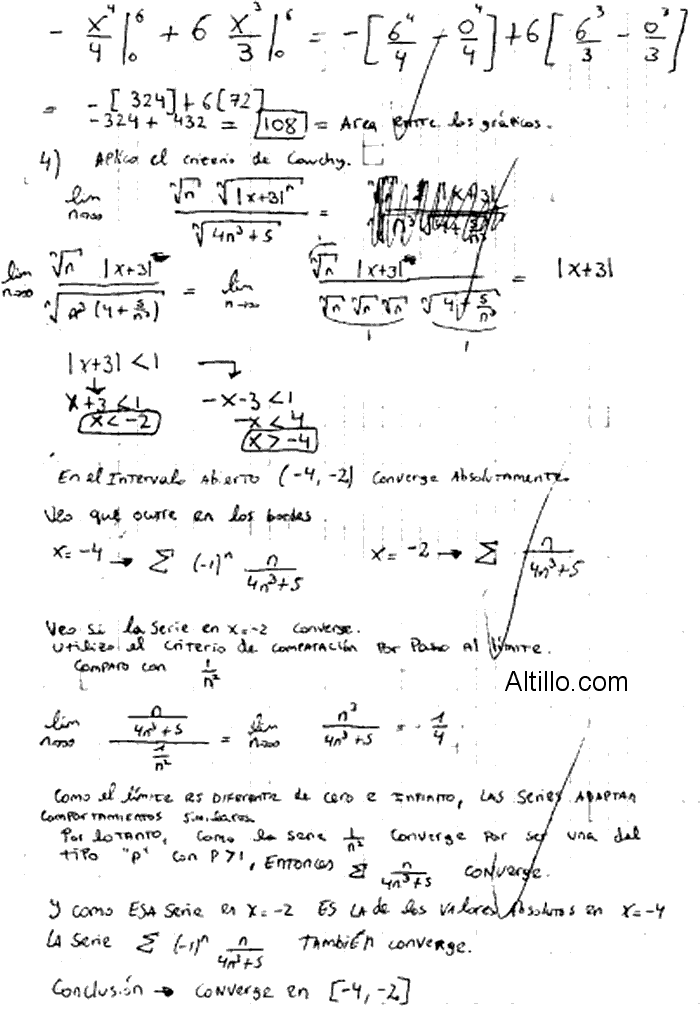 - x⁴/4 |₀⁶ + 6 x³/3 |₀⁶ = -[6⁴/4 - 0⁴/4] + 6[6³/3 - 0³/3]
= -[324] + 6[72]
-324 + 432 = 108 = Area entre los gráficos.
4) Aplico el criterio de Cauchy.
lim n→∞ ⁿ√n ⁿ√|x+3|ⁿ / ⁿ√(4n³+5) =
lim n→∞ ⁿ√n |x+3| / ⁿ√(n³(4+5/n³)) = lim n→∞ ⁿ√n |x+3| / (ⁿ√n ⁿ√n ⁿ√n ⁿ√(4+5/n³)) = |x+3|
1 1 1
|x+3| < 1 →
x+3 < 1 -x-3 < 1
x < -2 -x < 4
x > -4
En el Intervalo Abierto (-4, -2) Converge Absolutamente.
Veo que ocurre en los bordes.
x = -4 → Σ (-1)ⁿ n/(4n³+5) x = -2 → Σ n/(4n³+5)
Veo si la serie en x=-2 converge.
Utilizo el criterio de comparación por Paso Al límite.
Comparo con 1/n²
Altillo.com
lim n→∞ (n/(4n³+5)) / (1/n²) = lim n→∞ n³/(4n³+5) = 1/4
Como el límite es DIFERENTE de cero e INFINITO, LAS SERIES ADAPTAN
COMPORTAMIENTOS similares.
Por lo TANTO, como la serie 1/n² converge por ser una del
tipo "p" con P>1, ENTONCES Σ n/(4n³+5) converge.
Y como ESA serie en x=-2 ES LA de los valores Absolutos en x=-4
LA serie Σ (-1)ⁿ n/(4n³+5) TAMBIÉN converge.
Conclusión → converge en [-4, -2]